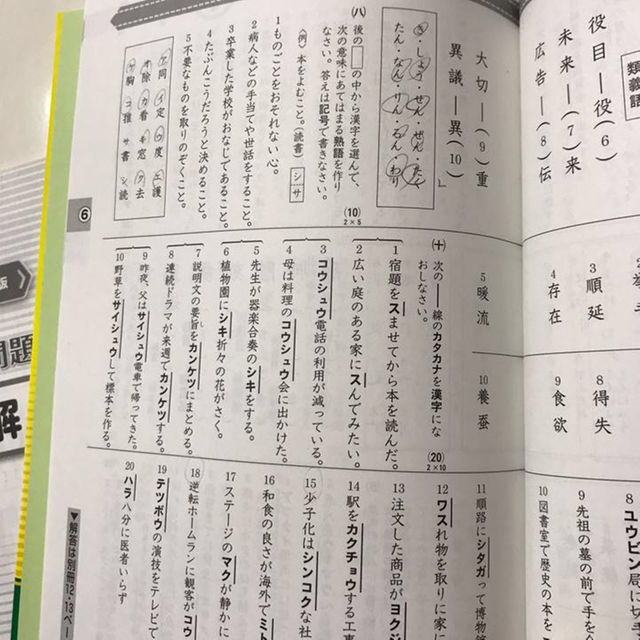 類義語
役目―役(6)
未来―(7)来
広告―(8)伝
大切―(9)重
異議―異(10)
(八) 後の□の中から漢字を選んで、
次の意味にあてはまる熟語を作り
なさい。答えは記号で書きなさい。
(10)
2×5
〈例〉本をよむこと。(読書) シサ
1 ものごとをおそれない心。
2 病人などの手当てや世話をすること。
3 卒業した学校がおなじであること。
4 たぶんこうだろうと決めること。
5 不要なものを取りのぞくこと。
ア同 イ定 ウ度 エ護
オ除 カ看 キ窓 ク去
ケ胸 コ推 サ書 シ読
6
3 順延
4 存在
5 暖流
8 得失
9 食欲
10 養蚕
(十) 次の――線のカタカナを漢字にな
おしなさい。
(20)
2×10
1 宿題をスませてから本を読んだ。
2 広い庭のある家にスんでみたい。
3 コウシュウ電話の利用が減っている。
4 母は料理のコウシュウ会に出かけた。
5 先生が器楽合奏のシキをする。
6 植物園にシキ折々の花がさく。
7 説明文の要旨をカンケツにまとめる。
8 連続ドラマが来週でカンケツする。
9 昨夜、父はサイシュウ電車で帰ってきた。
10 野草をサイシュウして標本を作る。
8 ユウビン局に
9 先祖の墓の前で手を
10 図書室で歴史の本を
11 順路にシタガって博物
12 ワスれ物を取りに家に
13 注文した商品がヨクジ
14 駅をカクチョウする工事
15 少子化はシンコクな社
16 和食の良さが海外でミト
17 ステージのマクが静かに
18 逆転ホームランに観客がコウ
19 テツボウの演技をテレビで
20 ハラ八分に医者いらず
▼解答は別冊12・13ペー
版
問題
解